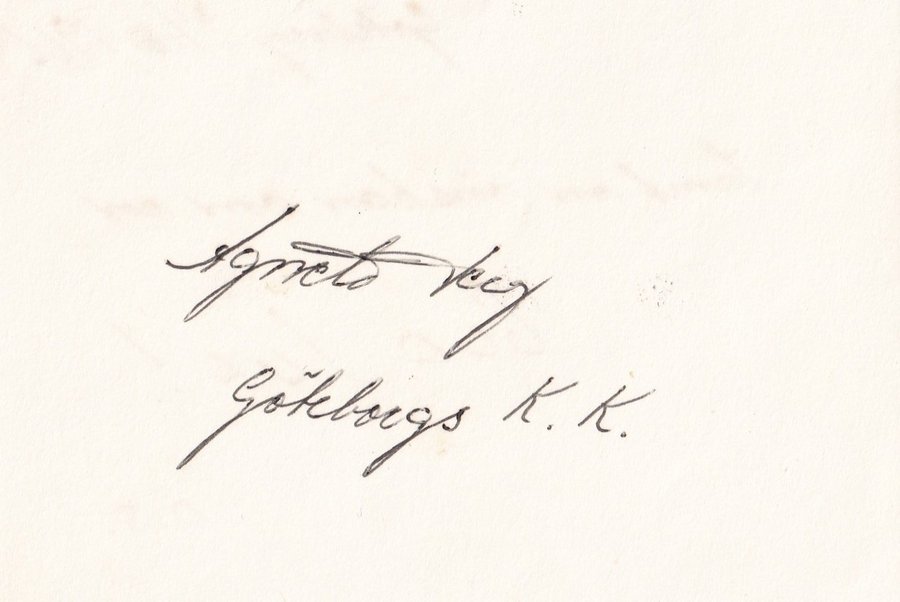 Agneta
Göteborgs K. K.